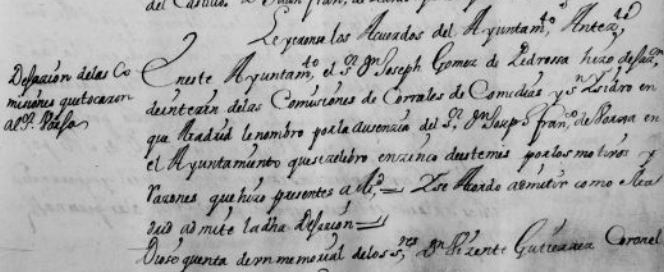 del
Leyeronse los Acuerdos del Ayuntam.to Antez.te
Desazion delas Co
misiones que tocaron
al S.r
Eneste Ayuntam.to el S.r Dn Joseph Gomez de Pedrossa hizo desaz.on
deinterin delas Comisiones de Corrales de Comedias y Sn Ysidro en
que Madrid le nombro por la ausenzia del S.r Dn Joseph fran.co de
el Ayuntamiento que se zelebro en zinco de este mes por los motivos y
razones que hizo presentes a M.d = Y se Acordo admitir como Ma
drid admite la dha Desazion =
Diose quenta de vn memorial de los S.res Dn Vizente Gutierrez Coronel